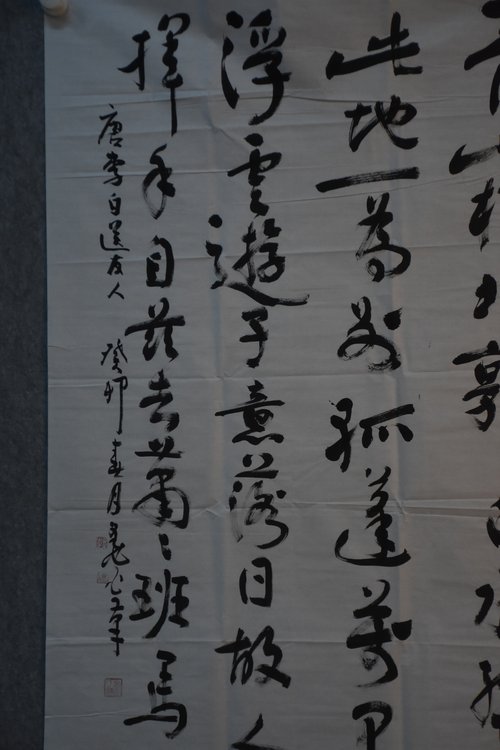 青山橫北郭白水繞
此地一為別孤蓬萬里
浮雲遊子意落日故人
揮手自茲去蕭〻班馬
唐李白送友人 癸卯春月